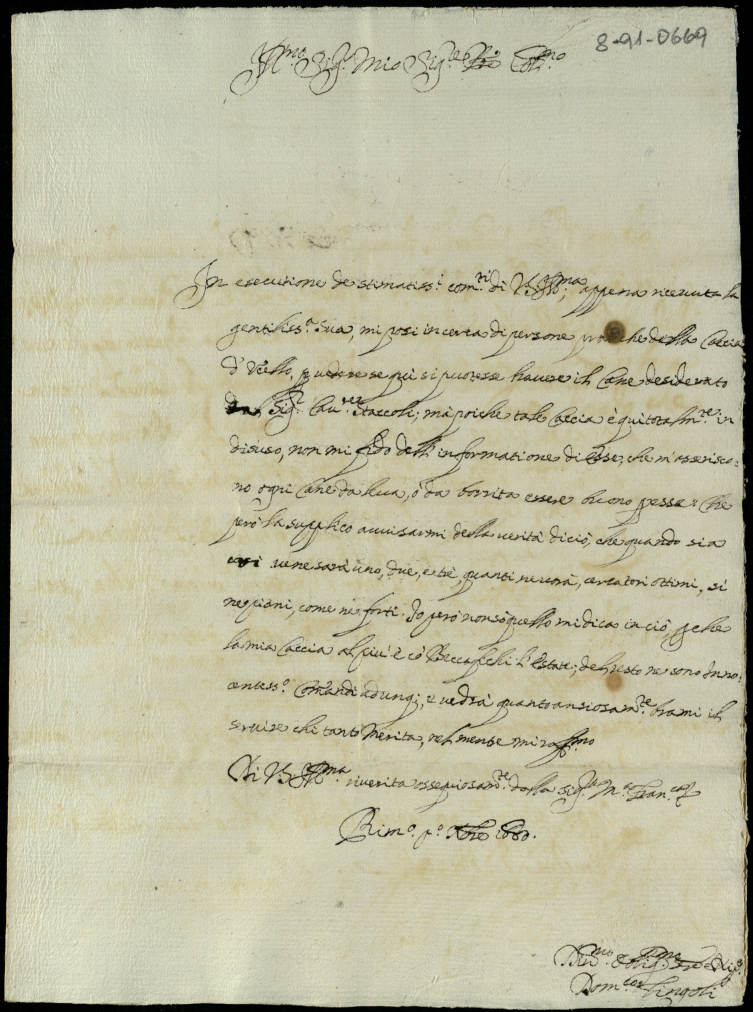 8-91-0669
Ill.mo Sig.r Mio Sig.re P.ro Col.mo
In esecutione de stimatiss.i com.ti di V.S. Ill.ma, appena ricevuta la
gentiliss.a Sua, mi posi in cerca di persone pratiche della Caccia
d'Vcello, p vedere se quì si potesse havere il Cane desiderato
dal Sig.r Cau.re Staccoli; mà poiche tale Caccia è qui totalm.te in
disuso, non mi fido dell'informatione di esse, che m'asserisco=
no ogni Cane da leva, ò da borrita essere buono p esse. Che
però la supplico avvisarmi della verità di ciò, che quando sia
così ve ne sarà uno, due, e trè, quanti ne vorrà, cercatori ottimi, sì
ne piani, come ne forti. Io però non sò quello mi dica in ciò, p che
la mia Caccia al più è cò Beccafichi l'Estate; del resto ne sono Inno=
centiss.o Comandi adunq;, e vedrà quanto ansiosam.te brami il
servire chi tanto Merita, nel mentre mi raff.mo
Di V.S. Ill.ma riverita ossequiosam.te dalla Sig.ra M.a Fran.ca
Rim.o p.o Xbre 1680.
Dev.mo & Oblig.mo
Dom.co Lingoli